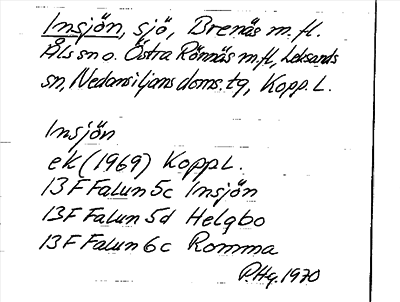 Insjön, sjö, Brenäs m.fl.
Åls sn o. Östra Rönnäs m.fl, Leksands
sn, Nedansiljans doms.tg, Kopp. L.
Insjön
ek (1969) Kopp L.
13 F Falun 5c Insjön
13F Falun 5d Helgbo
13 F Falun 6c Romma
P.Hg. 1970